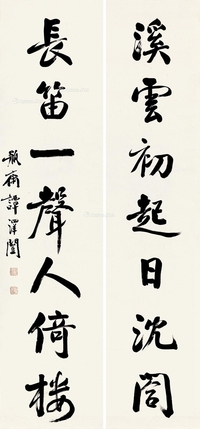 溪雲初起日沈閣
長笛一聲人倚樓
瓶齋譚澤闓